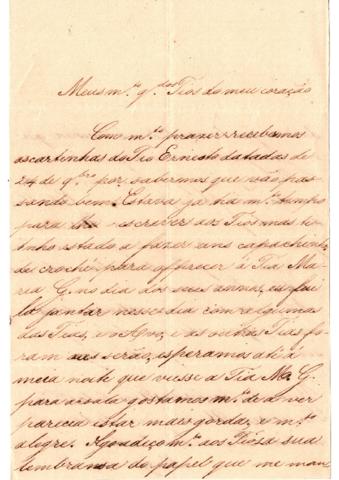 Meus m.tos q.dos Tios do meu coração
Com m.to prazer recebemos
as cartinhas do Tio Ernesto datadas de
24 de 9.bro por sabermos que vão pas
sando bem. Estava ja ha m.to tempo
para escrever aos Tios mas te
nho estado a fazer uns
de croché para offrecer á Tia Ma
ria G. no dia dos seus annos, eu fui
lá jantar nesse dia com algumas
das Tias, e o Avo, e as outras Tias fo
ram ao serão, esperamos até á
meia noite que viesse a Tia M. G.
para a sala gostamos m.to de a ver
parecia estar mais gorda, e m.to
alegre. Agradeço m.to aos Tios a sua
lembransa do papel que me man